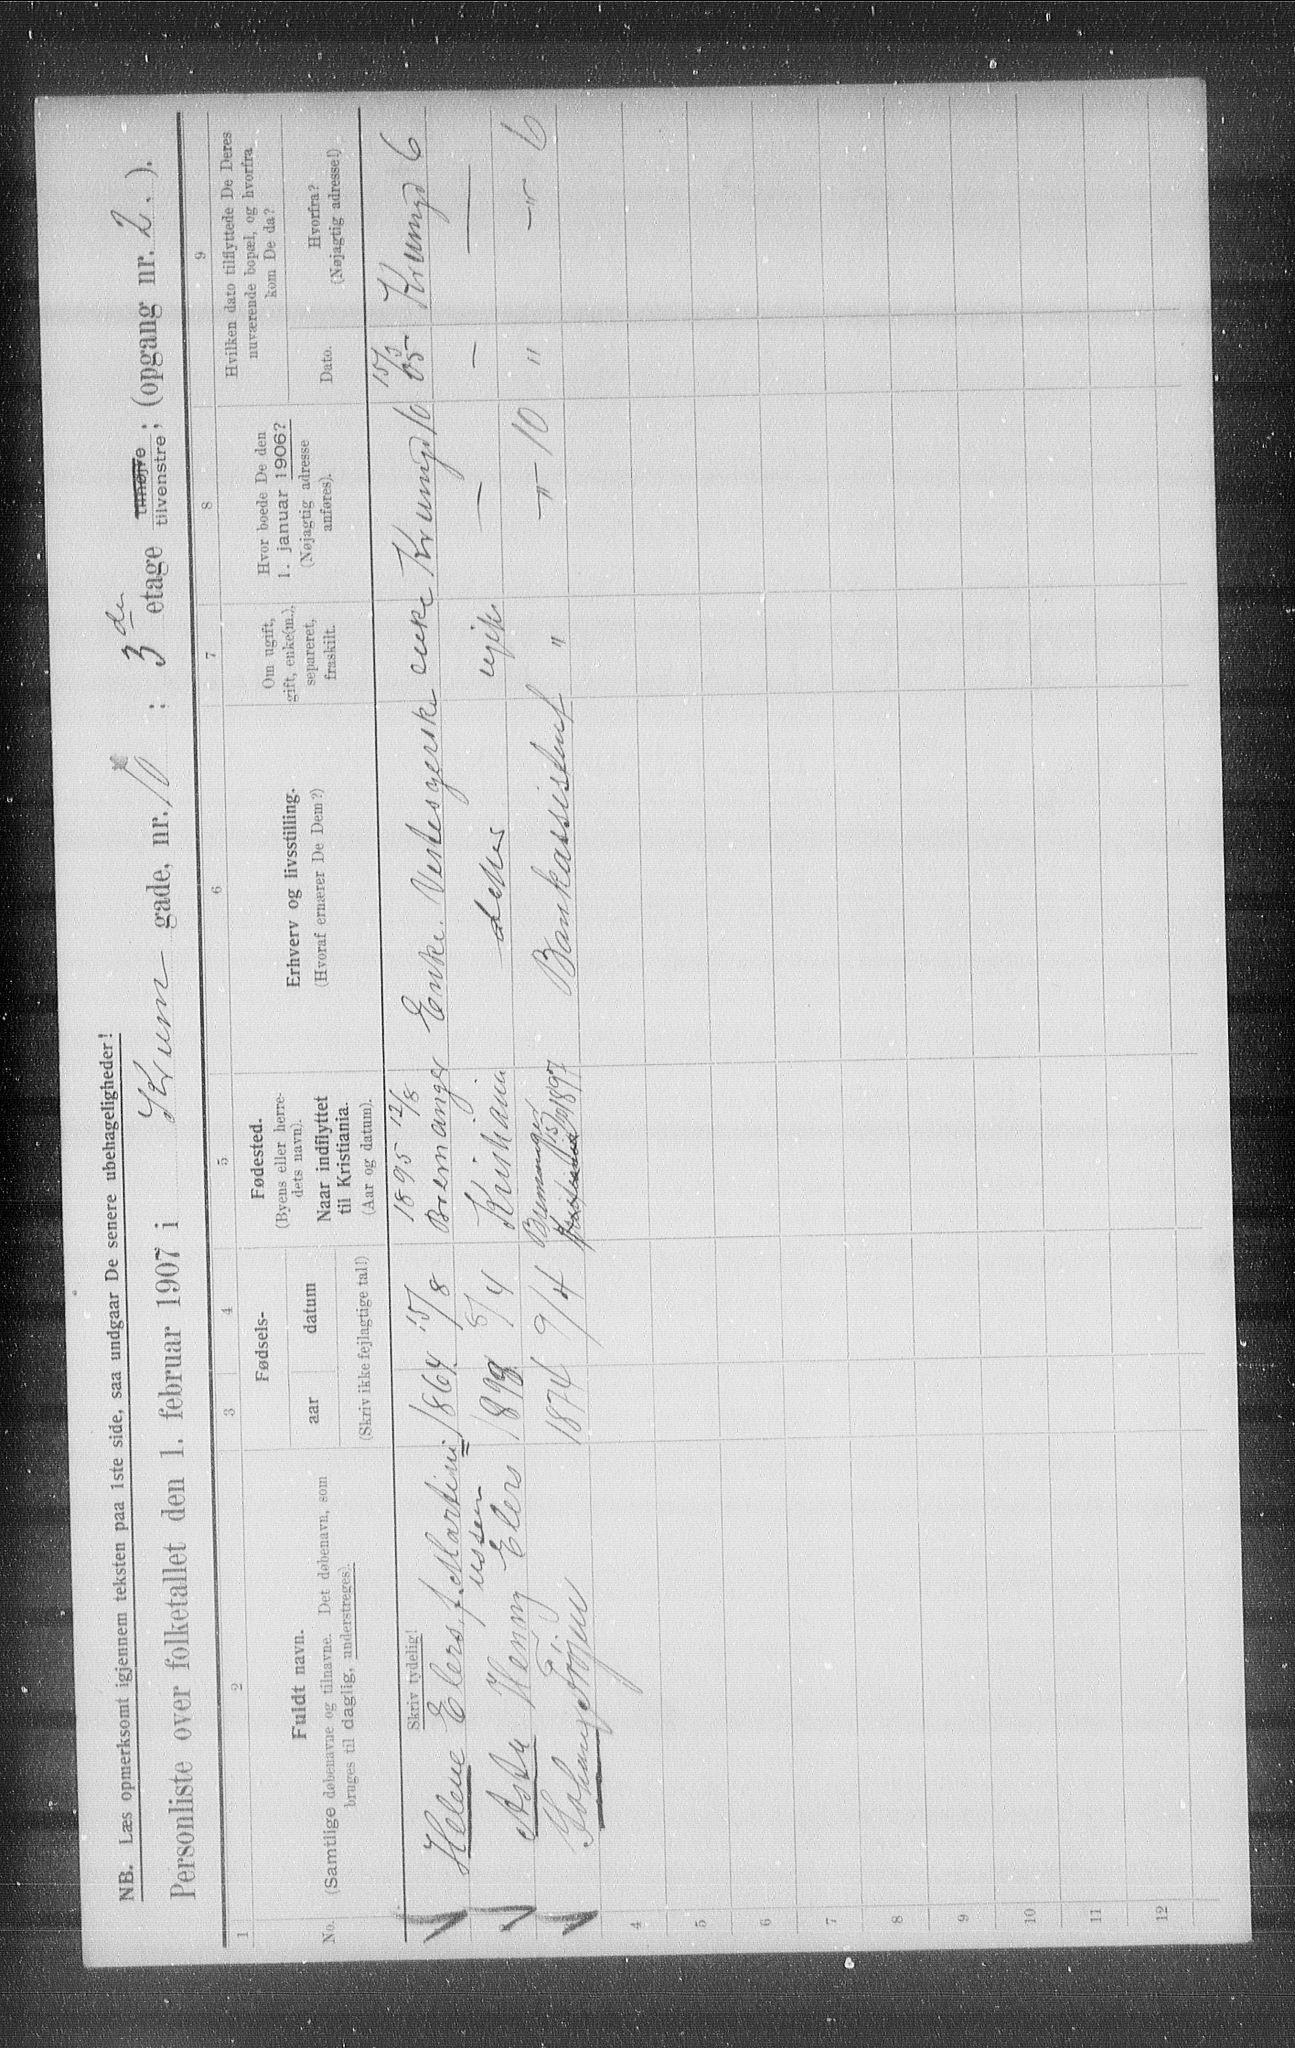 NB. Læs opmerksomt igjennem teksten paa 1ste side, saa undgaar De senere ubehageligheder!
Personliste over folketallet den 1. februar 1907 i Krum- gade, nr. 10 : 3de etage tilhøjre tilvenstre; (opgang nr. 2.).
1 2 3 4 5 6 7 8 9
No.
Fuldt navn.
(Samtlige døbenavne og tilnavne. Det døbenavn, som
bruges til daglig, understreges).
Fødsels-
aar datum
(Skriv ikke fejlagtige tal!)
Fødested.
(Byens eller herre-
dets navn).
Naar indflyttet
til Kristiania.
(Aar og datum).
Erhverv og livsstilling.
(Hvoraf ernærer De Dem?)
Om ugift,
gift, enke(m.),
separeret,
fraskilt.
Hvor boede De den
1. januar 1906?
(Nøjagtig adresse
anføres).
Hvilken dato tilflyttede De Deres
nuværende bopæl, og hvorfra
kom De da?
Dato.
Hvorfra?
(Nøjagtig adresse!)
Skriv tydelig!
1895 12/8 15/3
Helene Elers f. Martini 1864 15/8 Bremanger Enke. Vestesyerske enke Krumgd 10 05 Krumgd 6
ussen
Asta Henny Elers 1898 8/4 Kristiania datter ugift — — —
Bremanger
Johan 1874 9/4 15/ 1897 Bankassistent " -"- 10 " -"- 6
4
5
6
7
8
9
10
11
12